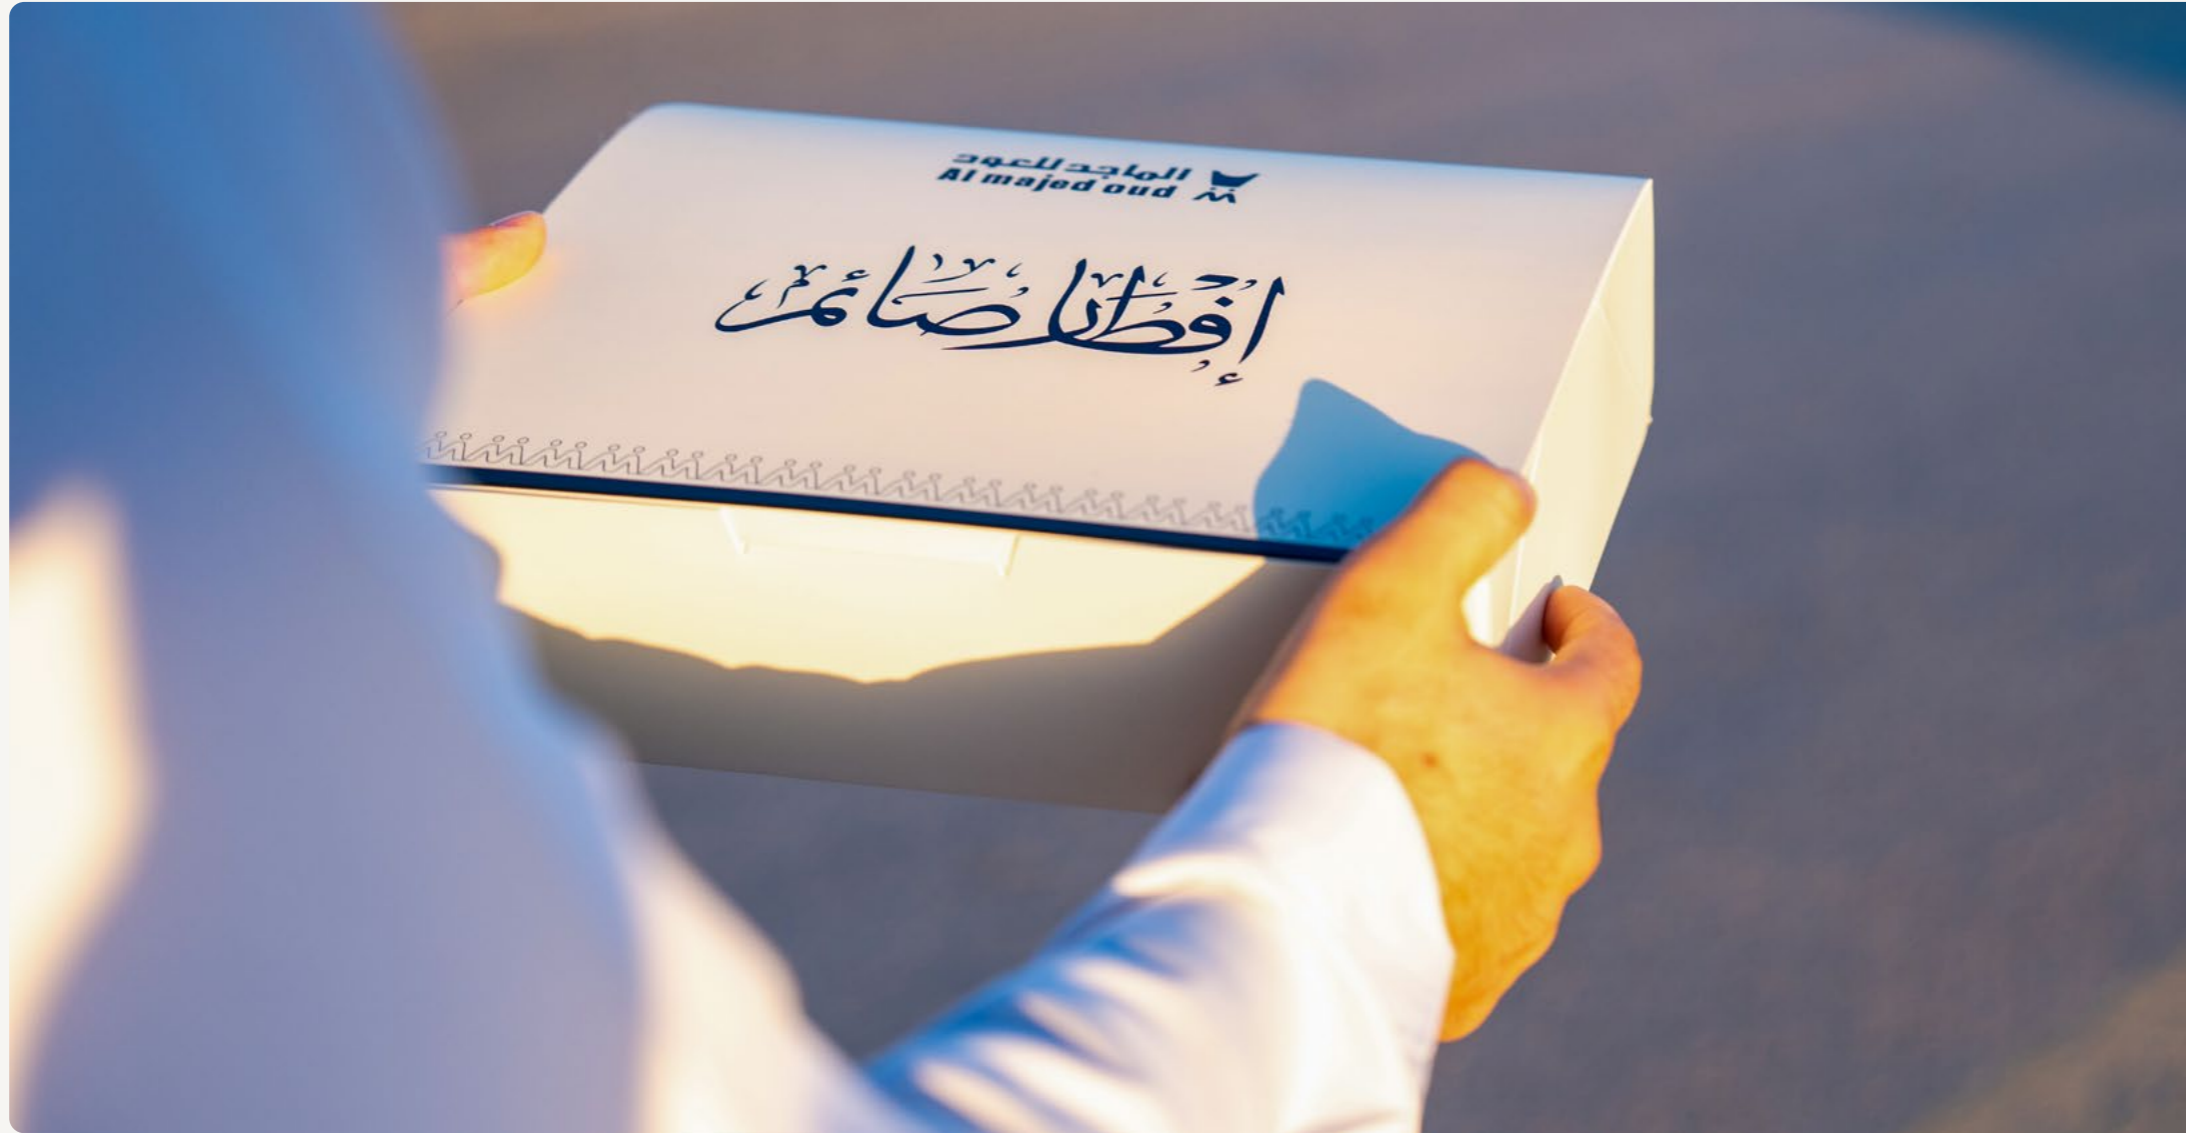 الماجد للعود
Al majed oud
إفطار صائم